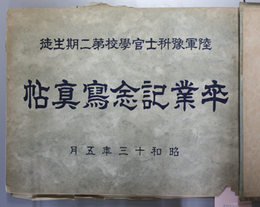 陸軍豫科士官學校第二期生徒
卒業記念寫真帖
昭和十三年五月